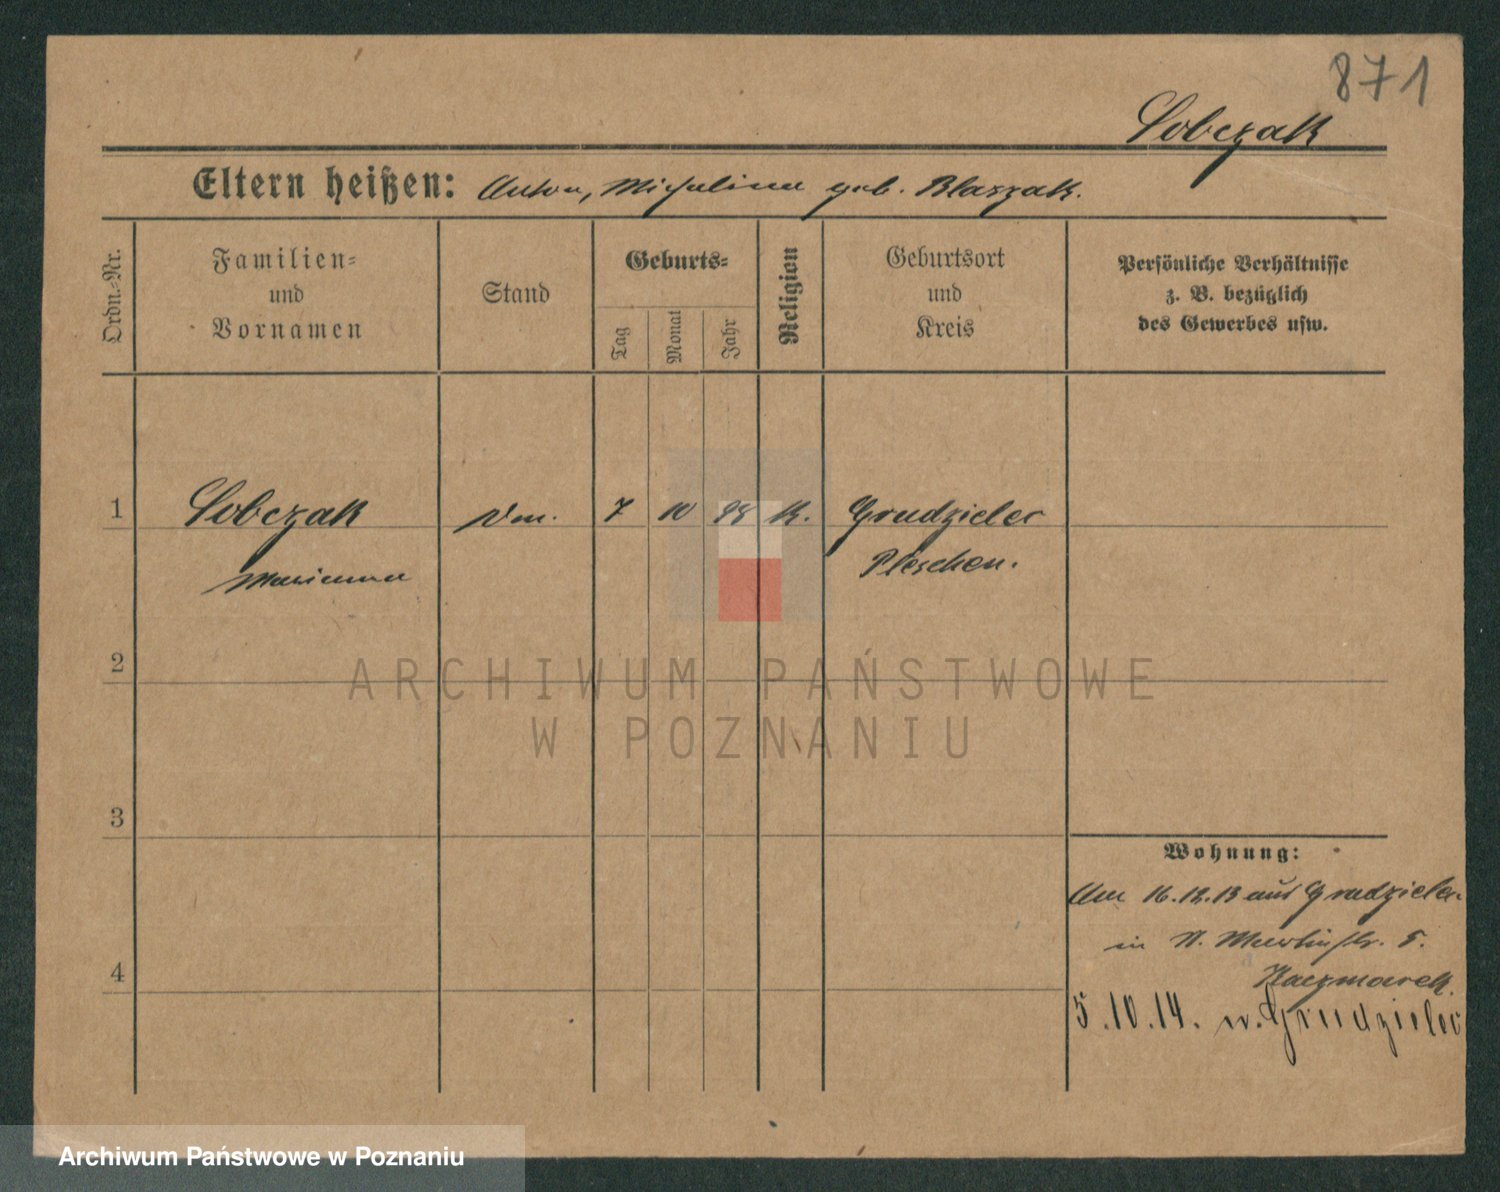 871
Sobczak
Eltern heißen: Anton, Michalina geb. Blaszak.
Ordn.-Nr.
Familien-
und
Vornamen
Stand
Geburts-
Tag
Monat
Jahr
Religion
Geburtsort
und
Kreis
Persönliche Verhältnisse
z. B. bezüglich
des Gewerbes usw.
1 Sobczak 7 10 98 k. Grudzielec
Marianna Pleschen.
2
ARCHIWUM PAŃSTWOWE
W POZNANIU
3
Wohnung:
Am 16.12.13 aus Grudzielec
in St. Martinstr. 5.
4
Kaczmarek.
5.10.14. n. Grudzielec
Archiwum Państwowe w Poznaniu